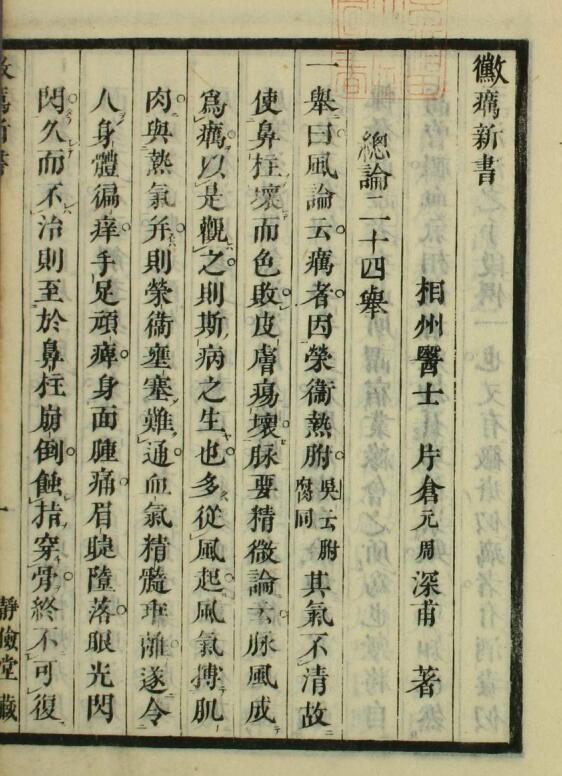 黴癘新書
相州醫士 片倉元周深甫 著
總論二十四舉
一舉曰風論云癘者因榮衞熱胕吳云胕腐同其氣不清故
使鼻柱壞而色敗皮膚瘍壞脉要精微論云脉風成
爲癘以是觀之則斯病之生也多從風起風氣搏肌
肉與熱氣并則榮衞壅塞難通血氣精髓乖離遂令
人身體徧痒手足頑痺身面腫痛眉睫墮落眼光閃
閃久而不治則至於鼻柱崩倒蝕指穿骨終不可復
靜儉堂藏